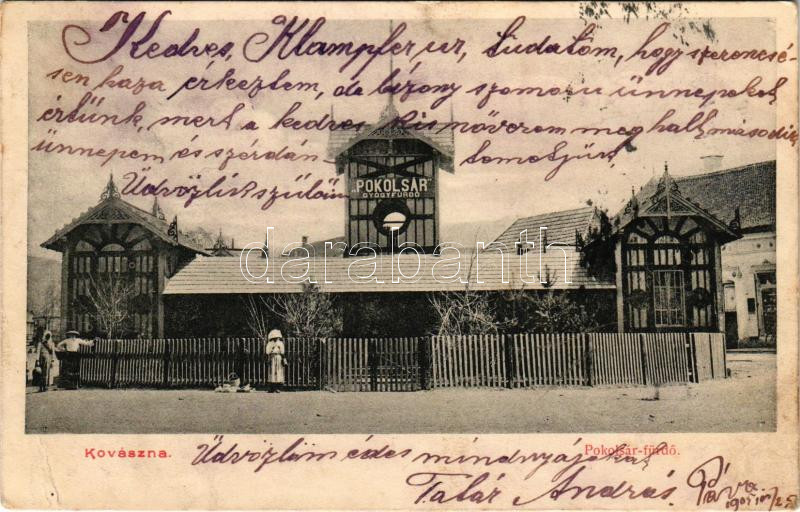 Kedves, Klampfer ur, tudatom, hogy szerencsé-
sen haza érkeztem, de bizony szomoru ünnepeket
értünk, mert a kedves kis növérem meg halt második
ünnepem és szérdán temetjük,
Üdvözlik szülöim
"POKOLSÁR"
GYÓGYFÜRDŐ
darabanth
Kovászna.
Pokolsár-fürdő.
Üdvözlöm édes mindnyájokat
Tatár András
Páva